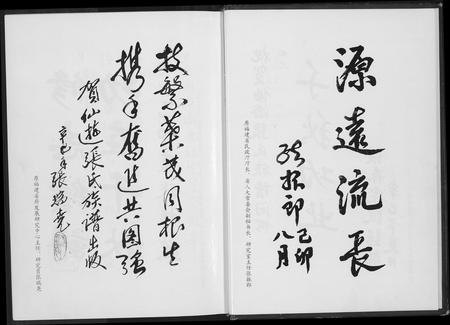 源遠流長
張振郎 己卯
八月
原福建省民政厅厅长、省人大常委会副秘书长、研究室主任张振郎
枝繁葉茂同根生
携手奮進共圖强
賀仙遊張氏族譜出版
辛巳年 張瑞堯
原福建省府发展研究中心主任、研究员张瑞尧